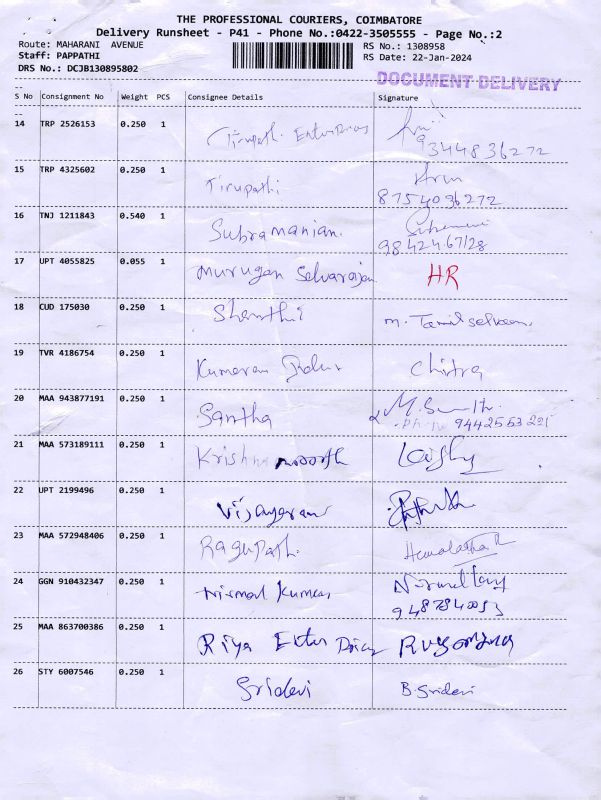 THE PROFESSIONAL COURIERS, COIMBATORE
Delivery Runsheet - P41 - Phone No.:0422-3505555 - Page No.:2
Route: MAHARANI AVENUE RS No.: 1308958
Staff: PAPPATHI RS Date: 22-Jan-2024
DRS No.: DCJB130895802
DOCUMENT DELIVERY
S No Consignment No Weight PCS Consignee Details Signature
14 TRP 2526153 0.250 1 Tirupathi Enterprises
9344836272
15 TRP 4325602 0.250 1 Tirupathi Arun
8754096272
16 TNJ 1211843 0.540 1 Subramanian.
98424 67128
17 UPT 4055825 0.055 1 Murugan Selvarajan HR
18 CUD 175030 0.250 1 Shanthi m. Tamilselvan
19 TVR 4186754 0.250 1 Kumaran Chitra
20 MAA 943877191 0.250 1 Santha
Ph: 9442553221
21 MAA 573189111 0.250 1 Krishnamoorth
22 UPT 2199496 0.250 1 Vijayaran
23 MAA 572948406 0.250 1 Ragupathi Hemalatha R
24 GGN 910432347 0.250 1 Nirmal Kumar
25 MAA 863700386 0.250 1 Riya Enter
26 STY 6007546 0.250 1 Sridevi B. Sridevi